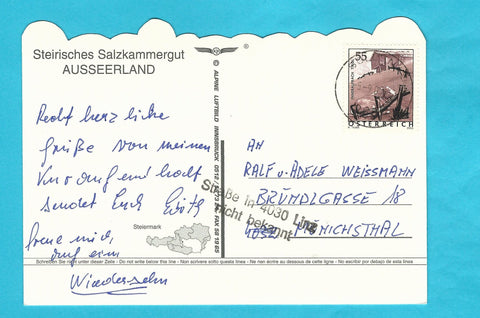 Steirisches Salzkammergut
AUSSEERLAND
Recht herzliche
Grüße von meinem
Kuraufenthalt
sendet Euch
freue mich
auf ein
Wiedersehn
Steiermark
© ALPINE LUFTBILD INNSBRUCK 0512 / FAX 58 19 65
55
ÖSTERREICH
AN
RALF u. ADELE WEISSMANN
BRÜNDLGASSE 18
MÖNICHSTHAL
Straße in 4030 Linz
nicht bekannt
Schreiben Sie nicht unter dieser Zeile - Do not write below the line - Non scrivere sotto questa linea - Ne rien écrire au dessous de cette ligne - No escribir por debajo de esta línea